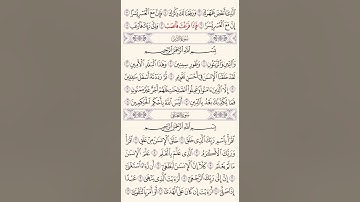 ٱلَّذِىٓ أَنقَضَ ظَهْرَكَ ٣ وَرَفَعْنَا لَكَ ذِكْرَكَ ٤ فَإِنَّ مَعَ ٱلْعُسْرِ يُسْرًا ٥
إِنَّ مَعَ ٱلْعُسْرِ يُسْرًا ٦ فَإِذَا فَرَغْتَ فَٱنصَبْ ٧ وَإِلَىٰ رَبِّكَ فَٱرْغَب ٨
سُورَةُ التِّينِ
بِسْمِ ٱللَّهِ ٱلرَّحْمَٰنِ ٱلرَّحِيمِ
وَٱلتِّينِ وَٱلزَّيْتُونِ ١ وَطُورِ سِينِينَ ٢ وَهَٰذَا ٱلْبَلَدِ ٱلْأَمِينِ ٣
لَقَدْ خَلَقْنَا ٱلْإِنسَٰنَ فِىٓ أَحْسَنِ تَقْوِيمٍ ٤ ثُمَّ رَدَدْنَٰهُ أَسْفَلَ
سَٰفِلِينَ ٥ إِلَّا ٱلَّذِينَ ءَامَنُوا۟ وَعَمِلُوا۟ ٱلصَّٰلِحَٰتِ فَلَهُمْ أَجْرٌ غَيْرُ مَمْنُونٍ ٦
فَمَا يُكَذِّبُكَ بَعْدُ بِٱلدِّينِ ٧ أَلَيْسَ ٱللَّهُ بِأَحْكَمِ ٱلْحَٰكِمِينَ ٨
سُورَةُ العَلَقِ
بِسْمِ ٱللَّهِ ٱلرَّحْمَٰنِ ٱلرَّحِيمِ
ٱقْرَأْ بِٱسْمِ رَبِّكَ ٱلَّذِى خَلَقَ ١ خَلَقَ ٱلْإِنسَٰنَ مِنْ عَلَقٍ ٢ ٱقْرَأْ
وَرَبُّكَ ٱلْأَكْرَمُ ٣ ٱلَّذِى عَلَّمَ بِٱلْقَلَمِ ٤ عَلَّمَ ٱلْإِنسَٰنَ
مَا لَمْ يَعْلَمْ ٥ كَلَّآ إِنَّ ٱلْإِنسَٰنَ لَيَطْغَىٰٓ ٦ أَن رَّءَاهُ
ٱسْتَغْنَىٰٓ ٧ إِنَّ إِلَىٰ رَبِّكَ ٱلرُّجْعَىٰٓ ٨ أَرَءَيْتَ ٱلَّذِى يَنْهَىٰ ٩ عَبْدًا
إِذَا صَلَّىٰٓ ١٠ أَرَءَيْتَ إِن كَانَ عَلَى ٱلْهُدَىٰٓ ١١ أَوْ أَمَرَ بِٱلتَّقْوَىٰٓ ١٢